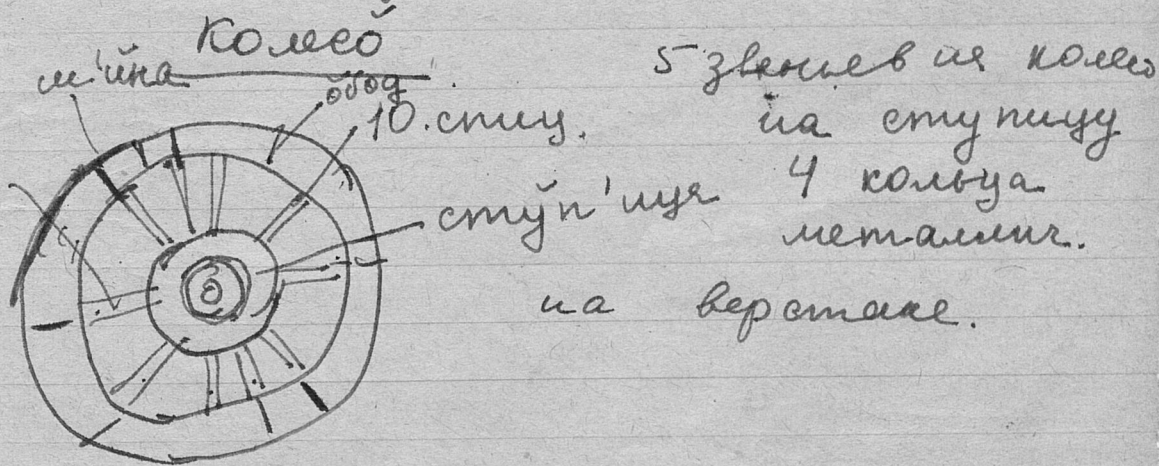 Колесо́
ш'и́на
о́бод
10. спиц.
сту́п'иця
5 звеньев на колесо
на ступицу
4 кольца
металлич.
на верстаке.